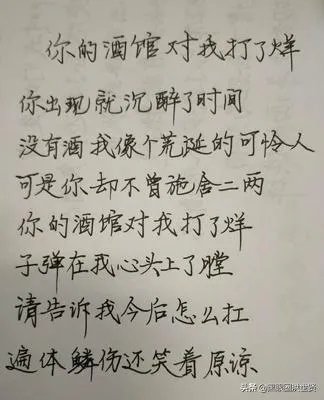 你的酒馆对我打了烊
你出现就沉醉了时间
没有酒我像个荒诞的可怜人
可是你却不曾施舍二两
你的酒馆对我打了烊
子弹在我心头上了膛
请告诉我今后怎么扛
遍体鳞伤还笑着原谅
头条